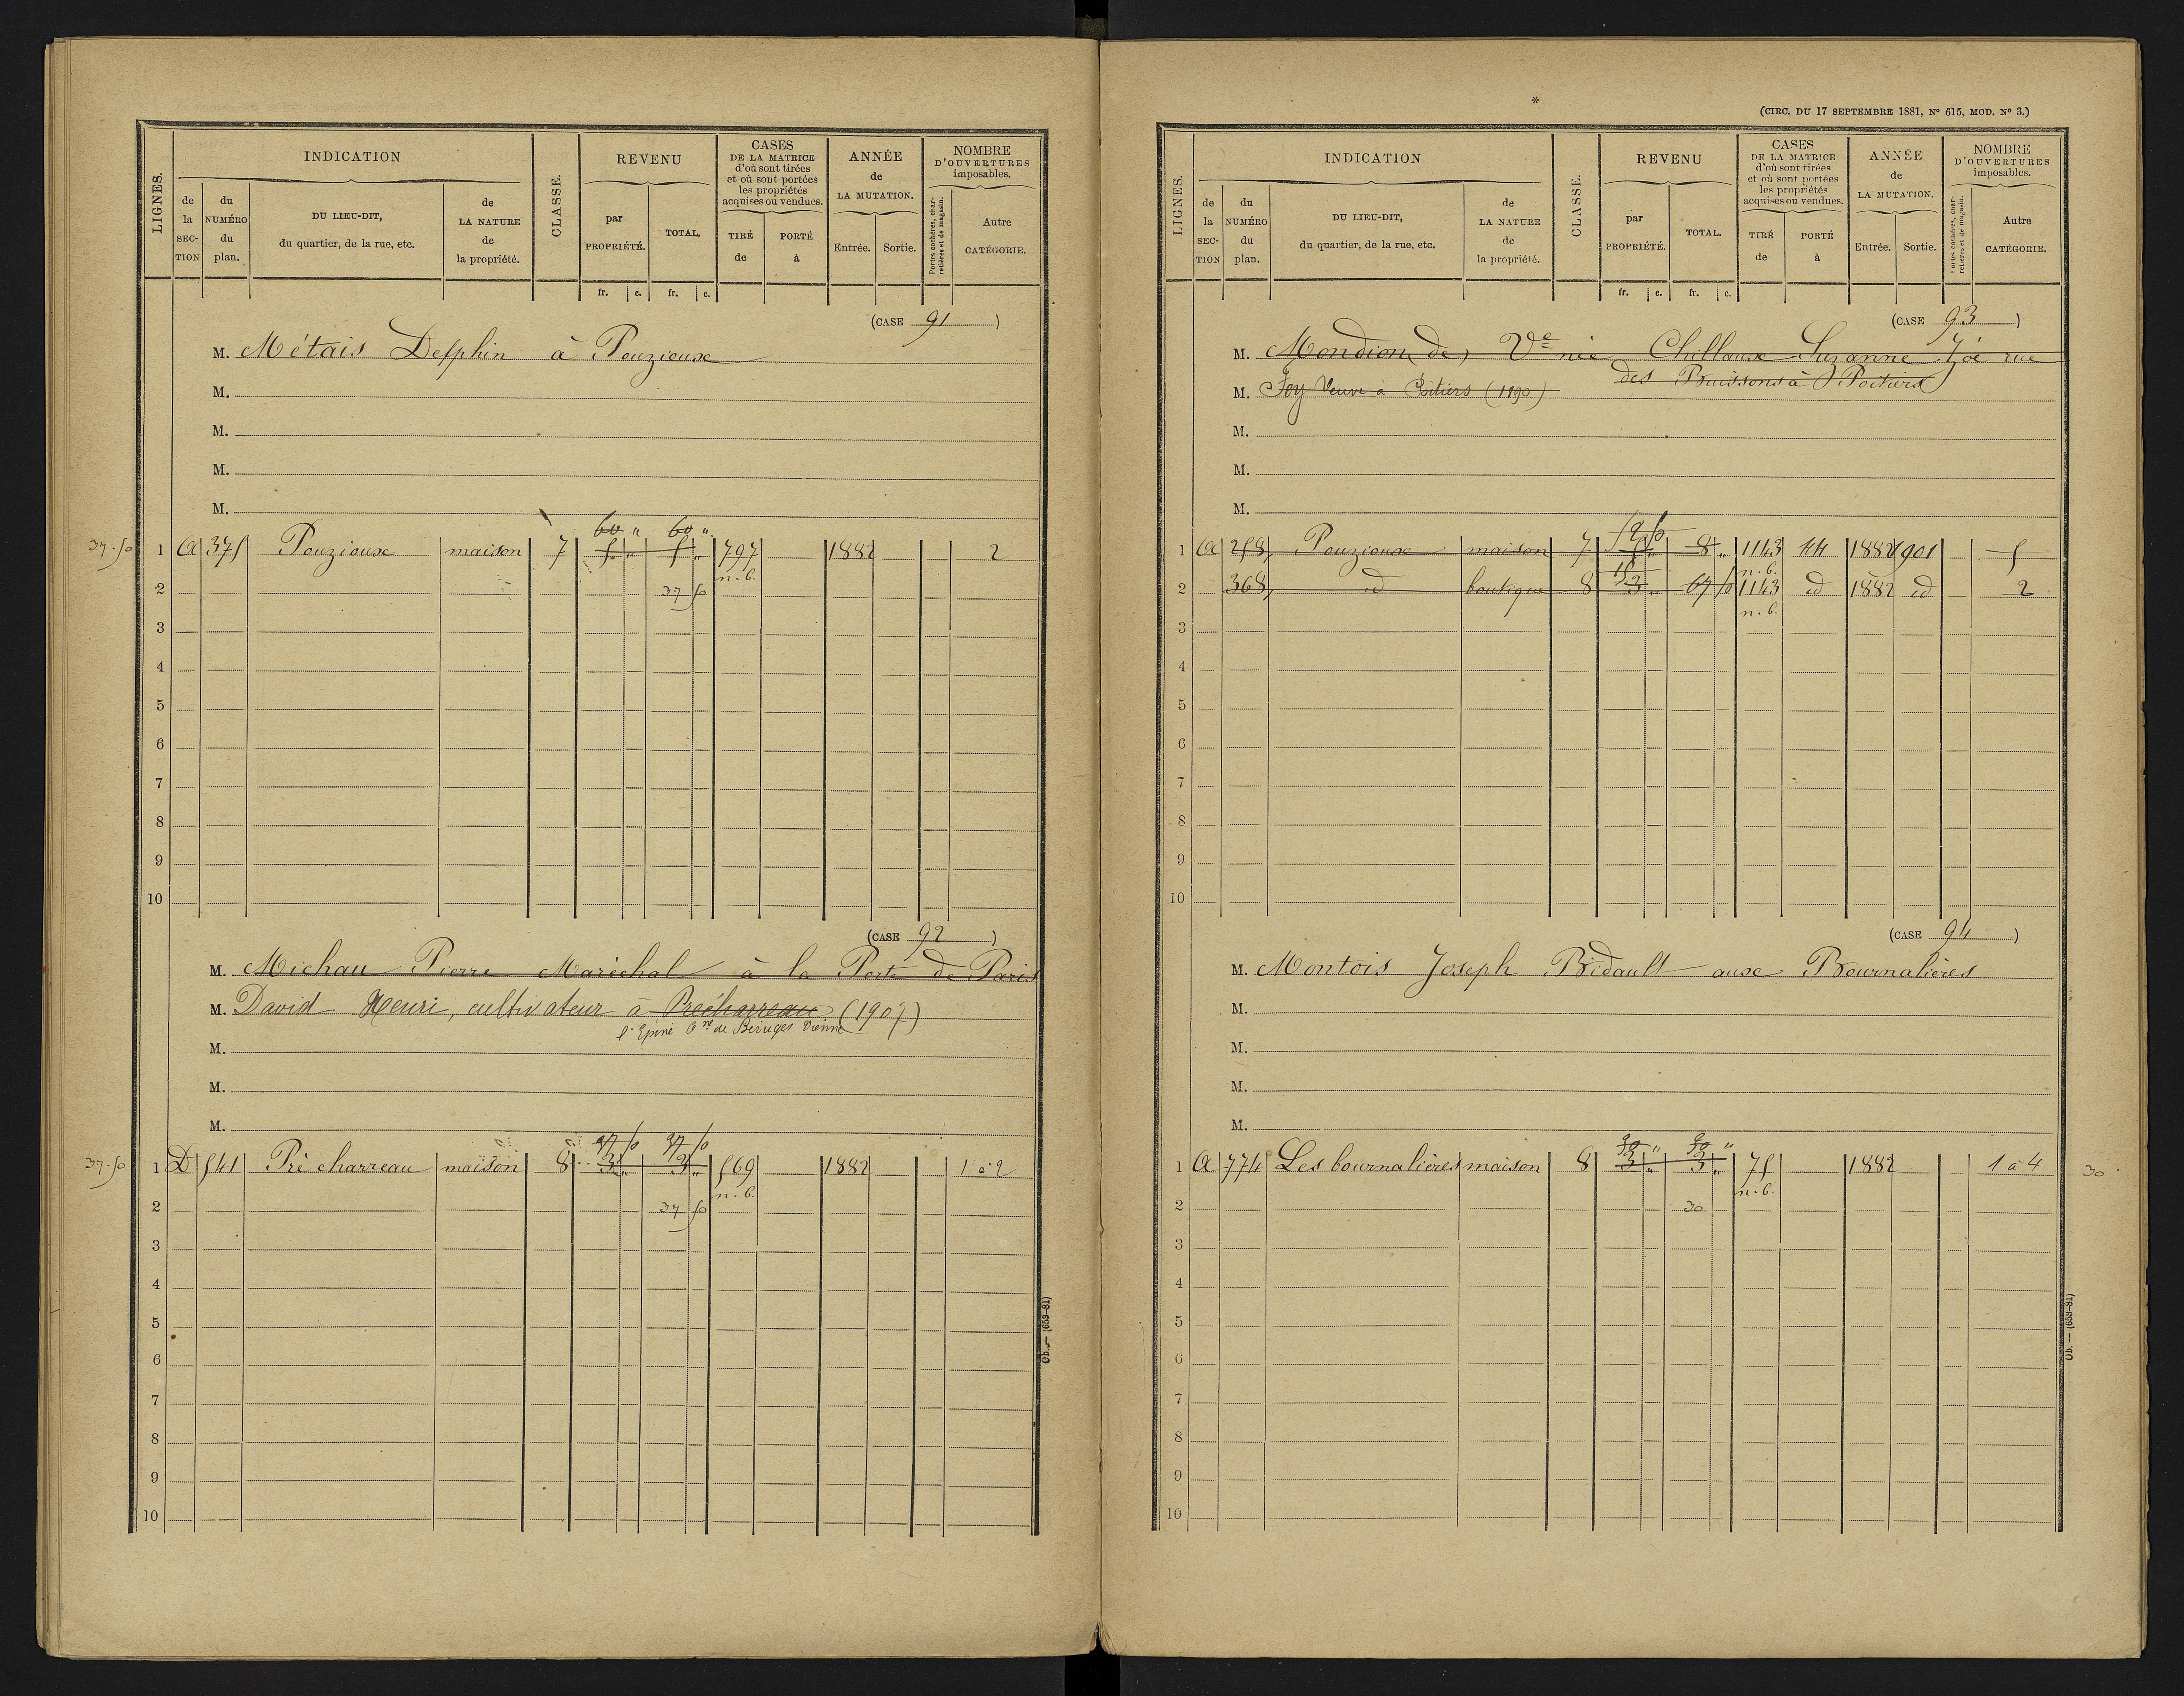 LIGNES.
INDICATION
de la SECTION
du NUMÉRO du plan.
DU LIEU-DIT, du quartier, de la rue, etc.
de LA NATURE de la propriété.
CLASSE.
REVENU
par PROPRIÉTÉ.
TOTAL.
CASES DE LA MATRICE d'où sont tirées et où sont portées les propriétés acquises ou vendues.
TIRÉ de
PORTÉ à
ANNÉE de LA MUTATION.
Entrée.
Sortie.
NOMBRE D'OUVERTURES imposables.
Portes cochères, charretières et de magasin.
Autre CATÉGORIE.
fr. c. fr. c.
(CASE 91)
M. Métais Delphin à Pouzioux
M.
M.
M.
M.
60 " 60 "
37.50 1 A 375 Pouzioux maison 7 5 " 5 " 797 1882 2
n.b.
2 37 50
3
4
5
6
7
8
9
10
(CASE 92)
M. Michau Pierre Maréchal à la Porte de Paris
M. David Henri, cultivateur à Précharreau (1907)
l'Epine Cne de Béruges Vienne
M.
M.
M.
37 50 37 50
37.50 1 D 541 Pré charreau maison 8 3 " 3 " 569 1882 1 à 2
n.b.
2 37 50
3
4
5
6
7
8
9
10
Ob. — (653-81)
*
(CIRC. DU 17 SEPTEMBRE 1881, N° 615, MOD. N° 3.)
LIGNES.
INDICATION
de la SECTION
du NUMÉRO du plan.
DU LIEU-DIT, du quartier, de la rue, etc.
de LA NATURE de la propriété.
CLASSE.
REVENU
par PROPRIÉTÉ.
TOTAL.
CASES DE LA MATRICE d'où sont tirées et où sont portées les propriétés acquises ou vendues.
TIRÉ de
PORTÉ à
ANNÉE de LA MUTATION.
Entrée.
Sortie.
NOMBRE D'OUVERTURES imposables.
Portes cochères, charretières et de magasin.
Autre CATÉGORIE.
fr. c. fr. c.
(CASE 93)
M. Mondion (de) Ve née Suzanne rue
des Buissons à Poitiers
M. Foy Veuve à Poitiers (1890)
M.
M.
M.
52 50
1 A 258 Pouzioux maison 7 5 " 8 " 1143 44 1882 1901 5
n.b.
15
2 368 id boutique 8 3 " 67 50 1143 id 1882 id 2
n.b.
3
4
5
6
7
8
9
10
(CASE 94)
M. Montois Joseph Bidault aux Bournalières
M.
M.
M.
M.
30 " 30 "
1 A 774 Les bournalières maison 8 3 " 3 " 75 1882 1 à 4 30
n.b.
2 30
3
4
5
6
7
8
9
10
Ob. — (653-81)